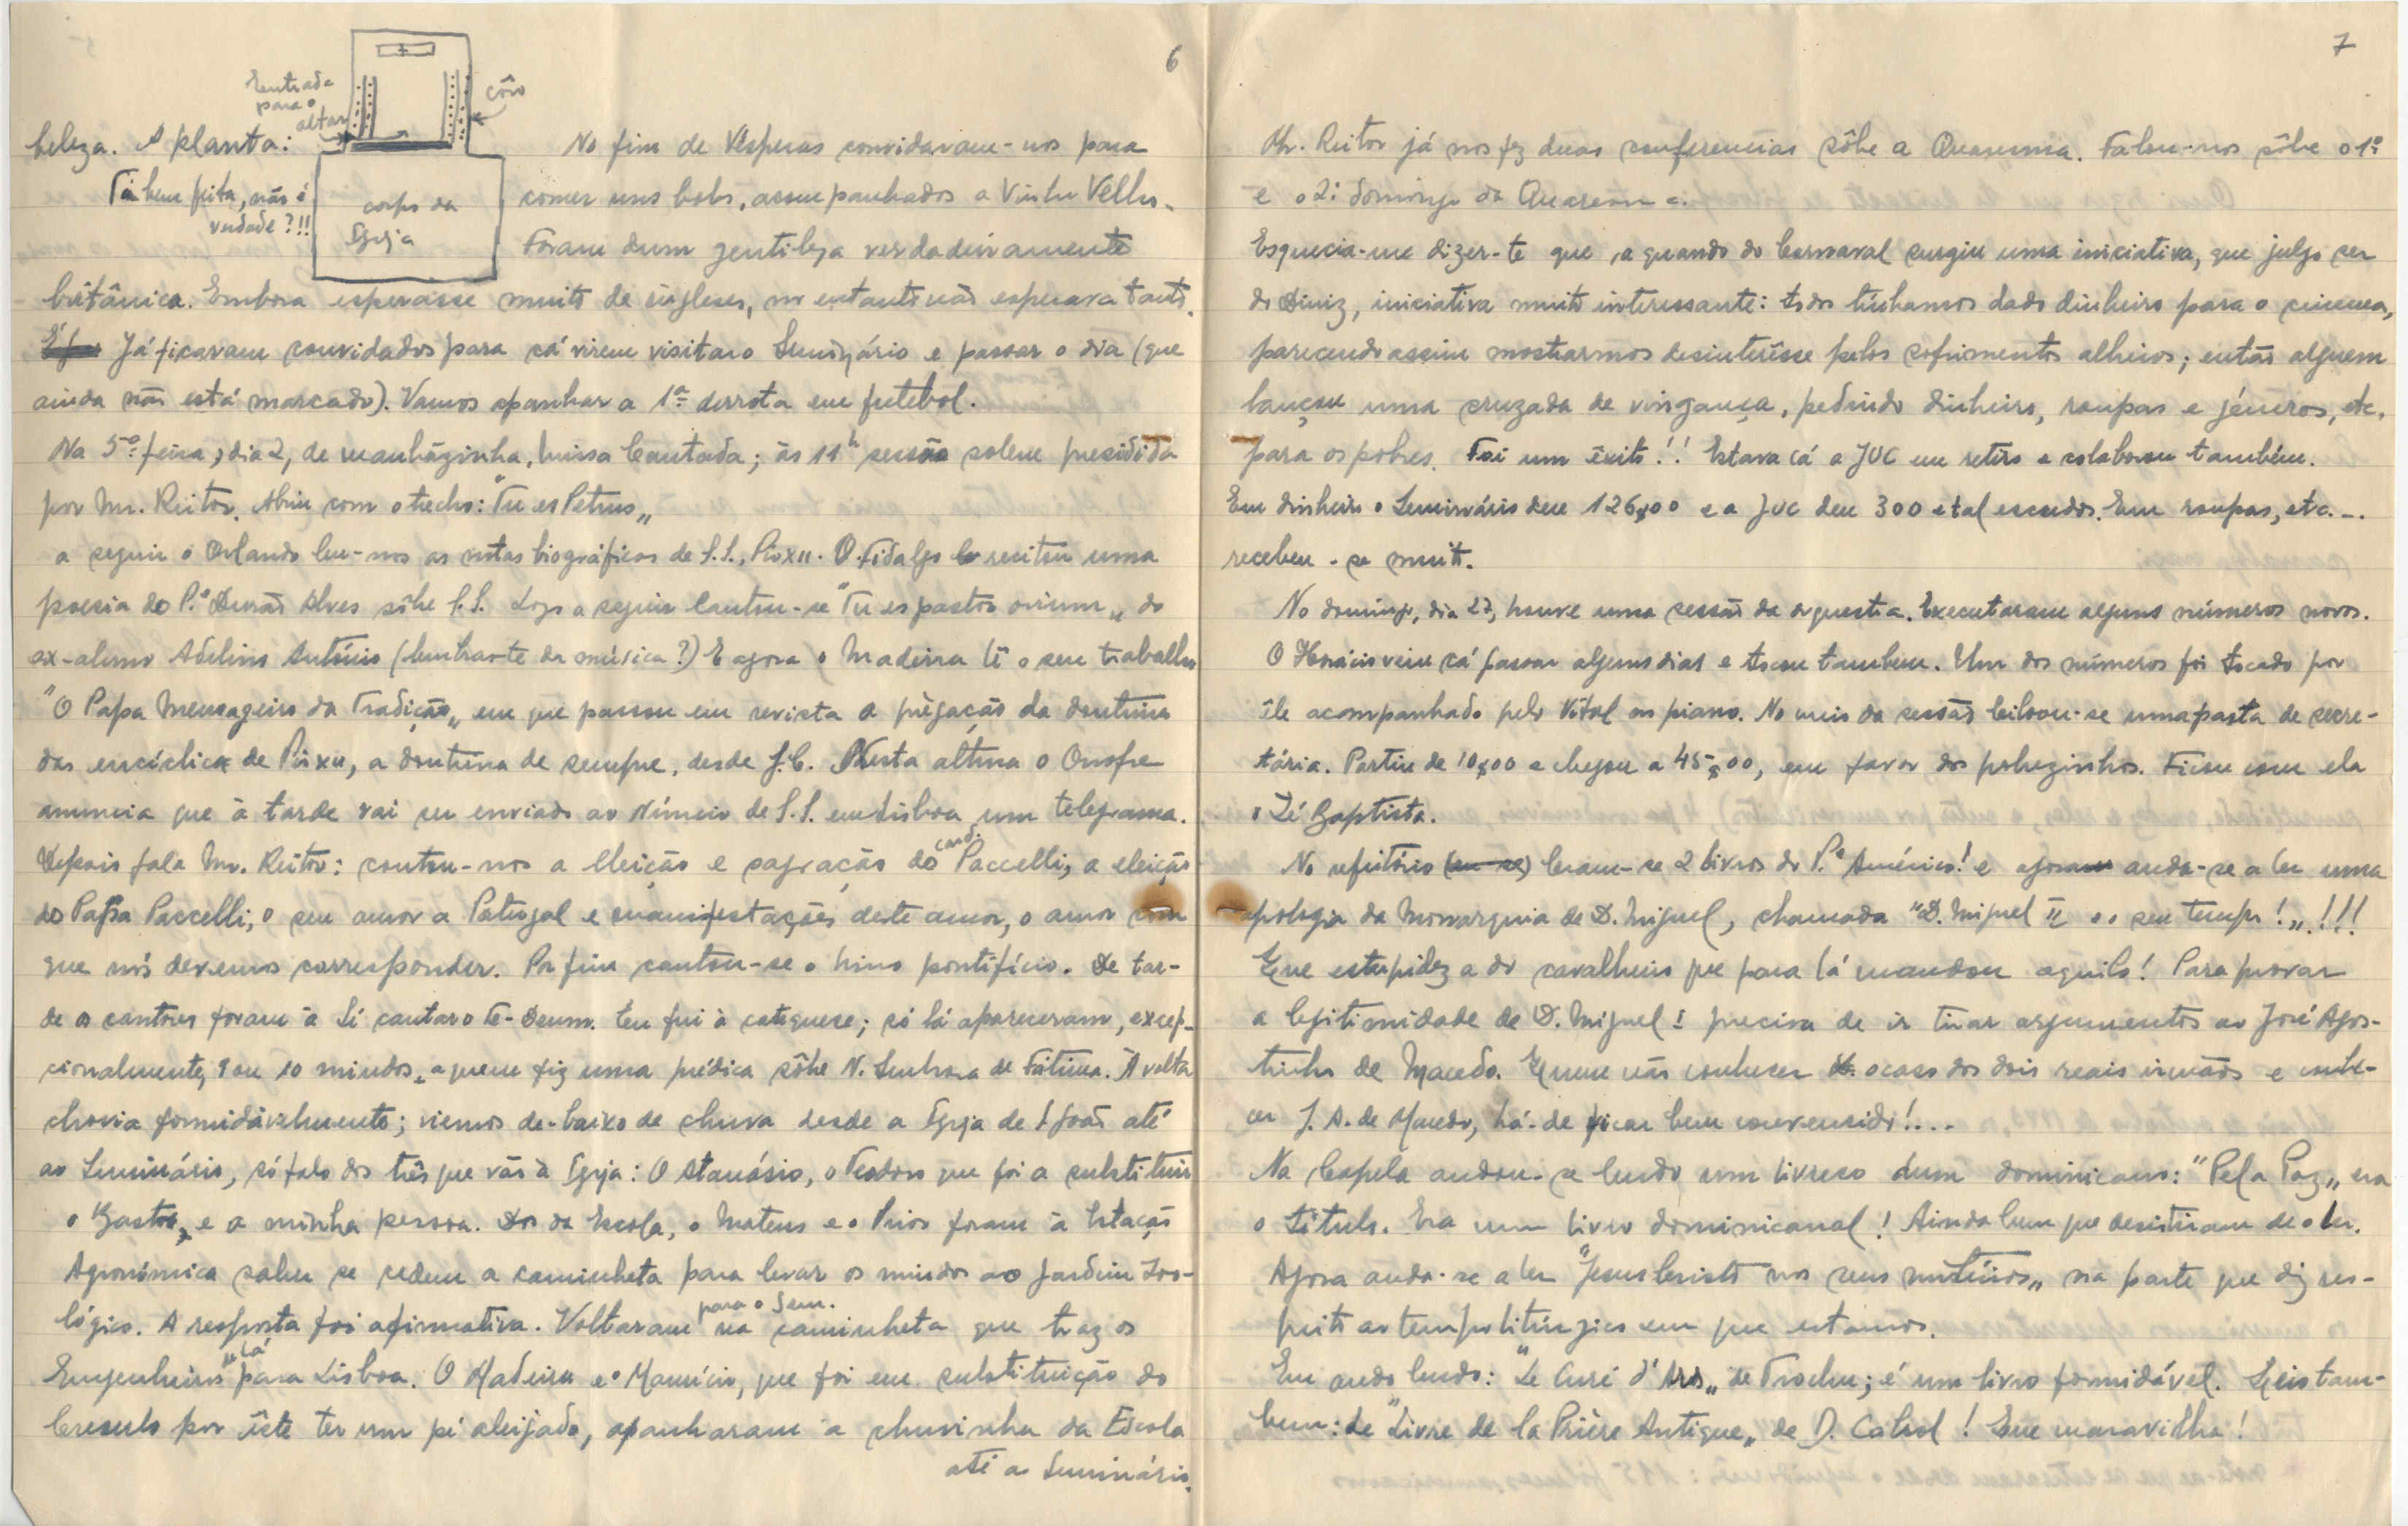 6
Entrada
para o
altar
côro
beleza. A planta:
Tá bem feita, não é
verdade?!!
corpo da
Igreja
No fim de Vésperas convidaram-nos para
comer uns bolos, acompanhados a Vinho Velho.
Foram dum gentileza verdadeiramente
britânica. Embora esperasse muito de ingleses, no entanto não esperava tanto.
Já ficaram convidados para cá virem visitar o Seminário e passar o dia (que
ainda não está marcado). Vamos apanhar a 1ª derrota em futebol.
Na 5ª feira, dia 2, de manhãzinha, missa Cantada; às 11h sessão solene presidida
por Mr. Reitor. Abriu com o trecho: "Tu es Petrus"
a seguir o Orlando leu-nos as notas biográficas de S.S. Pio XII. O Fidalgo recitou uma
poesia do P.e Durão Alves sôbre S.S. Logo a seguir Cantou-se "Tu es pastor ovium" do
ex-aluno Adelino António (lembras-te da música?) E agora o Madeira lê o seu trabalho
"O Papa Mensageiro da Tradição" em que passou em revista a prègação da doutrina
das encíclicas de Pio XII, a doutrina de sempre, desde J.C. Nesta altura o Onofre
anuncia que à tarde vai ser enviado ao Núncio de S.S. em Lisboa um telegrama.
Depois fala Mr. Reitor: contou-nos a eleição e sagração do card. Paccelli, a eleição
do Papa Paccelli, o seu amor a Portugal e manifestações deste amor, o amor com
que nós devemos corresponder. Por fim cantou-se o hino pontifício. De tar-
de os cantores foram à Sé cantar o Te-Deum. Eu fui à catequese; só lá apareceram, excep-
cionalmente, 9 ou 10 miudos, a quem fiz uma prédica sôbre N. Senhora de Fátima. À volta
chovia formidávelmente; viemos de-baixo de chuva desde a Igreja de S. João até
ao Seminário, só falo dos três que vão à Igreja: O Atanásio, o Teodoro que foi a substituir
o Gastão, e a minha pessoa. Dos da Escola, o Mateus e o Prior foram à Estação
Agronómica saber se cedem a caminheta para levar os miudos ao Jardim Zoo-
lógico. A resposta foi afirmativa. Voltaram para o Sem. na caminheta que traz os
Engenheiros de lá para Lisboa. O Madeira e o Maurício, que foi em substituição do
Cresculo por êste ter um pé aleijado, apanharam a chuvinha da Escola
até ao Seminário.
7
Mr. Reitor já nos fez duas conferencias sôbre a Quaresma. Falou-nos sôbre o 1º
e o 2º domingo da Quaresma.
Esquecia-me dizer-te que, a quando do Carnaval surgiu uma iniciativa, que julgo ser
do Diniz, iniciativa muito interessante: todos tínhamos dado dinheiro para o cinema,
parecendo assim mostrarmos desinterêsse pelos sofrimentos alheios; então alguem
lançou uma cruzada de vingança, pedindo dinheiro, roupas e géneros, etc.
para os pobres. Foi um êxito!! Estava cá a JUC em retiro e colaborou também.
Em dinheiro o Seminário deu 126$00 e a JUC deu 300 e tal escudos. Em roupas, etc...
recebeu-se muito.
No domingo, dia 27, houve uma sessão da orquestra. Executaram alguns números novos.
O Horácio veiu cá passar alguns dias e tocou tambem. Um dos números foi tocado por
êle acompanhado pelo Vital ao piano. No meio da sessão leiloou-se uma pasta de secre-
tária. Partiu de 10$00 e chegou a 45$00, em favor dos pobrezinhos. Ficou com ela
o Zé Baptista.
No refeitório (em se) leram-se 2 livros do P.e Américo! e agora anda-se a ler uma
apologia da Monarquia de D. Miguel, chamada "D. Miguel II e o seu tempo!" !!!
Que estupidez a do cavalheiro que para lá mandou aquilo! Para provar
a legitimidade de D. Miguel I precisa de ir tirar argumentos ao José Agos-
tinho de Macedo. Quem não conhecer o caso dos dois reais irmãos e conhe-
cer J. A. de Macedo, há-de ficar bem convencido!...
Na Capela andou-se lendo um livreco dum dominicano: "Pela Paz" era
o título. Era um livro dominicanal! Ainda bem que desistiram de o ler.
Agora anda-se a ler "Jesus Cristo nos seus mistérios" na parte que diz res-
peito ao tempo litúrgico em que estamos.
Eu ando lendo: "Le Curé d'Ars" de Trochu; é um livro formidável. Leio tam-
bem: de "Livre de la Prière Antique" de D. Cabrol! Que maravilha!